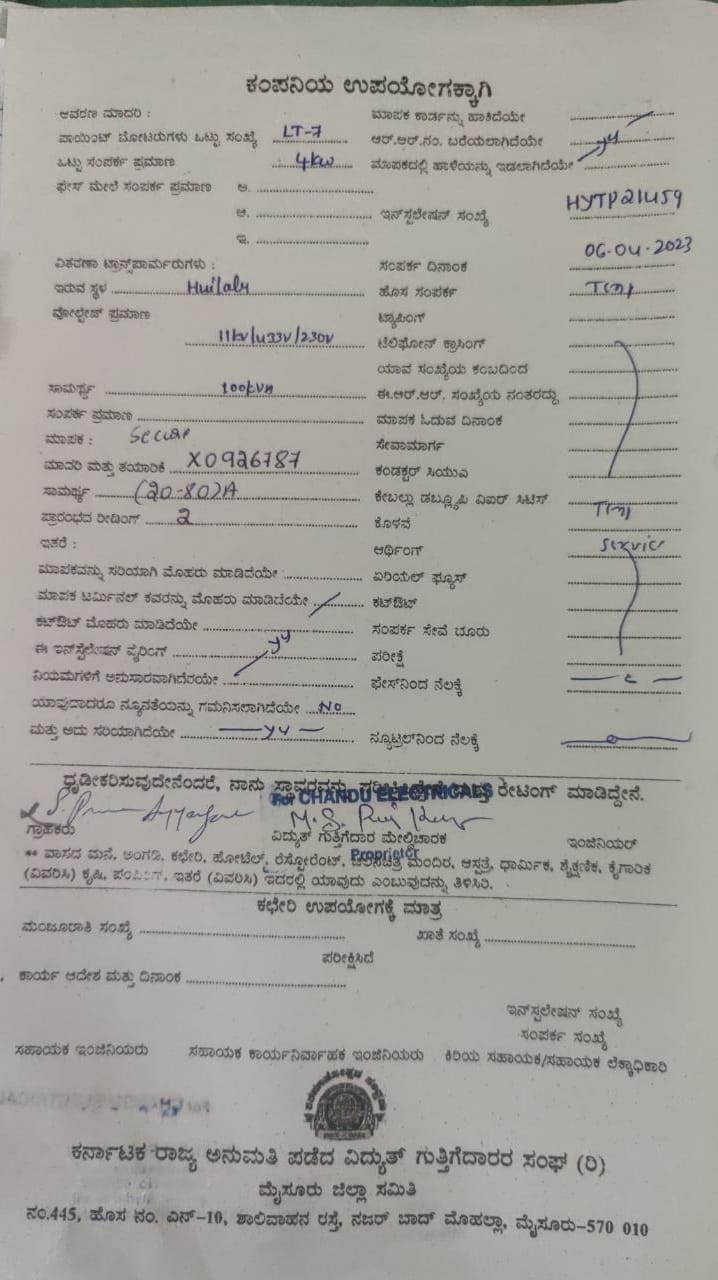 ಕಂಪನಿಯ ಉಪಯೋಗಕ್ಕಾಗಿ
ಆವರಣ ಮಾದರಿ : ಮಾಪಕ ಕಾರ್ಡನ್ನು ಹಾಕಿದೆಯೇ
ಪಾಯಿಂಟ್ ಮೋಟರುಗಳು ಒಟ್ಟು ಸಂಖ್ಯೆ LT-7 ಆರ್.ಆರ್.ನಂ. ಬರೆಯಲಾಗಿದೆಯೇ
ಒಟ್ಟು ಸಂಪರ್ಕ ಪ್ರಮಾಣ 4kw ಮಾಪಕದಲ್ಲಿ ಹಾಳೆಯನ್ನು ಇಡಲಾಗಿದೆಯೇ
ಫೇಸ್ ಮೇಲೆ ಸಂಪರ್ಕ ಪ್ರಮಾಣ ಅ.
ಆ. ಇನ್‌ಸ್ಟಲೇಷನ್ ಸಂಖ್ಯೆ HYTP21459
ಇ.
06-04-2023
ವಿತರಣಾ ಟ್ರಾನ್ಸ್‌ಪಾರ್ಮರುಗಳು : ಸಂಪರ್ಕ ದಿನಾಂಕ
ಇರುವ ಸ್ಥಳ ಹೊಸ ಸಂಪರ್ಕ
ವೋಲ್ಟೇಜ್ ಪ್ರಮಾಣ ಟ್ಯಾಪಿಂಗ್
11kv/433V/230V ಟೆಲಿಫೋನ್ ಕ್ರಾಸಿಂಗ್
ಯಾವ ಸಂಖ್ಯೆಯ ಕಂಬದಿಂದ
ಸಾಮರ್ಥ್ಯ 100kVA ಈ.ಆರ್.ಆರ್. ಸಂಖ್ಯೆಯ ನಂತರದ್ದು
ಸಂಪರ್ಕ ಪ್ರಮಾಣ ಮಾಪಕ ಓದುವ ದಿನಾಂಕ
ಮಾಪಕ : ಸೇವಾಮಾರ್ಗ
ಮಾದರಿ ಮತ್ತು ತಯಾರಿಕೆ X0926787 ಕಂಡಕ್ಟರ್ ಸಿಯುಎ
ಸಾಮರ್ಥ್ಯ (20-80)A ಕೇಬಲ್ಲು ಡಬ್ಲ್ಯೂಪಿ ವಿಐರ್ ಸಿಟಿಸ್
ಪ್ರಾರಂಭದ ರೀಡಿಂಗ್ 2 ಕೊಳವೆ
ಇತರೆ : ಆರ್ಥಿಂಗ್ service
ಮಾಪಕವನ್ನು ಸರಿಯಾಗಿ ಮೊಹರು ಮಾಡಿದೆಯೇ ಏರಿಯಲ್ ಫ್ಯೂಸ್
ಮಾಪಕ ಟರ್ಮಿನಲ್ ಕವರನ್ನು ಮೊಹರು ಮಾಡಿದೆಯೇ ಕಟ್‌ಔಟ್
ಕಟ್‌ಔಟ್ ಮೊಹರು ಮಾಡಿದೆಯೇ ಸಂಪರ್ಕ ಸೇವೆ ಚೂರು
ಈ ಇನ್‌ಸ್ಟಲೇಷನ್ ವೈರಿಂಗ್ ಪರೀಕ್ಷೆ
ನಿಯಮಗಳಿಗೆ ಅನುಸಾರವಾಗಿದೆರಯೇ ಫೇಸ್‌ನಿಂದ ನೆಲಕ್ಕೆ
ಯಾವುದಾದರೂ ನ್ಯೂನತೆಯನ್ನು ಗಮನಿಸಲಾಗಿದೆಯೇ No
ಮತ್ತು ಅದು ಸರಿಯಾಗಿದೆಯೇ ನ್ಯೂಟ್ರಲ್‌ನಿಂದ ನೆಲಕ್ಕೆ
ಧೃಡೀಕರಿಸುವುದೇನೆಂದರೆ, ನಾನು ಸ್ಥಾವರವನ್ನು ರೇಟಿಂಗ್ ಮಾಡಿದ್ದೇನೆ.
For CHANDU ELECTRICALS
ಗ್ರಾಹಕರು ವಿದ್ಯುತ್ ಗುತ್ತಿಗೆದಾರ ಮೇಲ್ವಿಚಾರಕ ಇಂಜಿನಿಯರ್
Proprietor
** ವಾಸದ ಮನೆ, ಅಂಗಡಿ, ಕಛೇರಿ, ಹೋಟೆಲ್, ರೆಸ್ಟೋರೆಂಟ್, ಚಲನಚಿತ್ರ ಮಂದಿರ, ಆಸ್ಪತ್ರೆ, ಧಾರ್ಮಿಕ, ಶೈಕ್ಷಣಿಕ, ಕೈಗಾರಿಕ
(ವಿವರಿಸಿ) ಕೃಷಿ, ಪಂಪಿಂಗ್, ಇತರೆ (ವಿವರಿಸಿ) ಇದರಲ್ಲಿ ಯಾವುದು ಎಂಬುವುದನ್ನು ತಿಳಿಸಿರಿ.
ಕಛೇರಿ ಉಪಯೋಗಕ್ಕೆ ಮಾತ್ರ
ಮಂಜೂರಾತಿ ಸಂಖ್ಯೆ ಖಾತೆ ಸಂಖ್ಯೆ
ಪರೀಕ್ಷಿಸಿದೆ
ಕಾರ್ಯ ಆದೇಶ ಮತ್ತು ದಿನಾಂಕ
ಇನ್‌ಸ್ಟಲೇಷನ್ ಸಂಖ್ಯೆ
ಸಂಪರ್ಕ ಸಂಖ್ಯೆ
ಸಹಾಯಕ ಇಂಜಿನಿಯರು ಸಹಾಯಕ ಕಾರ್ಯನಿರ್ವಾಹಕ ಇಂಜಿನಿಯರು ಕಿರಿಯ ಸಹಾಯಕ/ಸಹಾಯಕ ಲೆಕ್ಕಾಧಿಕಾರಿ
ಕರ್ನಾಟಕ ರಾಜ್ಯ ಅನುಮತಿ ಪಡೆದ ವಿದ್ಯುತ್ ಗುತ್ತಿಗೆದಾರರ ಸಂಘ (ರಿ)
ಮೈಸೂರು ಜಿಲ್ಲಾ ಸಮಿತಿ
ನಂ.445, ಹೊಸ ನಂ. ಎನ್-10, ಶಾಲಿವಾಹನ ರಸ್ತೆ, ನಜರ್ ಬಾದ್ ಮೊಹಲ್ಲಾ, ಮೈಸೂರು-570 010